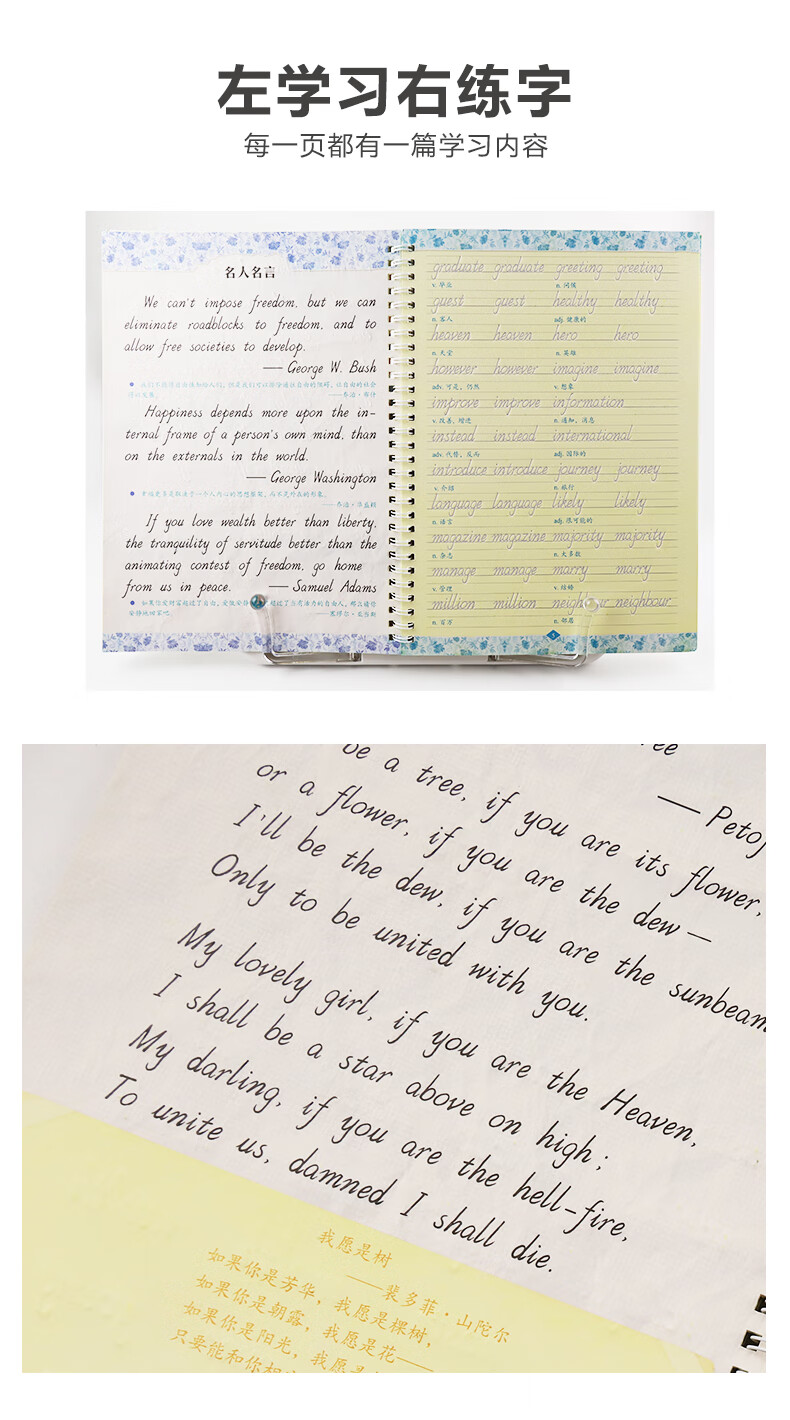 左学习右练字
每一页都有一篇学习内容
名人名言
We can't impose freedom, but we can
eliminate roadblocks to freedom, and to
allow free societies to develop.
— George W. Bush
Happiness depends more upon the in-
ternal frame of a person's own mind, than
on the externals in the world.
— George Washington
If you love wealth better than liberty,
the tranquility of servitude better than the
animating contest of freedom, go home
from us in peace. — Samuel Adams
graduate graduate greeting greeting
v. 毕业 n. 问候
guest guest healthy healthy
n. 客人 adj. 健康的
heaven heaven hero hero
n. 天堂 n. 英雄
however however imagine imagine
adv. 可是，仍然 v. 想象
improve improve information
v. 改善，增进 n. 通知，消息
instead instead international
adv. 代替，反而 adj. 国际的
introduce introduce journey journey
v. 介绍 n. 旅行
language language likely likely
n. 语言 adj. 很可能的
magazine magazine majority majority
n. 杂志 n. 大多数
manage manage marry marry
v. 管理 v. 结婚
million million neighbour neighbour
n. 百万 n. 邻居
— Petof
be a tree, if you are its flower,
or a flower, if you are the dew—
I'll be the dew, if you are the sunbeam
Only to be united with you.
My lovely girl, if you are the Heaven,
I shall be a star above on high;
My darling, if you are the hell-fire,
To unite us, damned I shall die.
我愿是树
——裴多菲·山陀尔
如果你是芳华，我愿是棵树，
如果你是朝露，我愿是花——
如果你是阳光，我愿
只要能和你